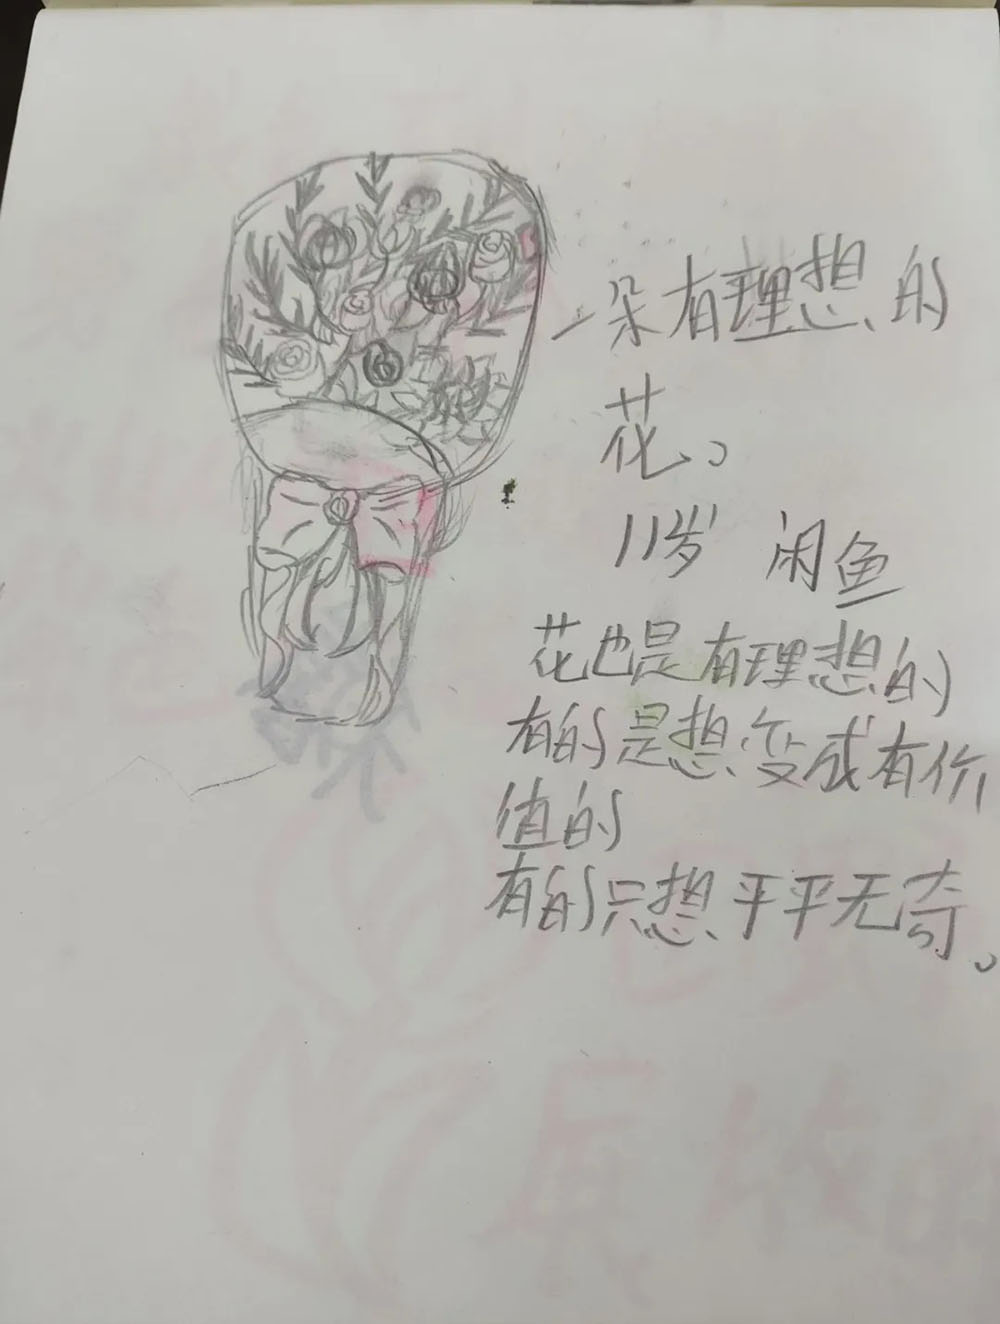 一朵有理想的
花。
11岁 闲鱼
花也是有理想的
有的是想变成有价
值的
有的只想平平无奇。